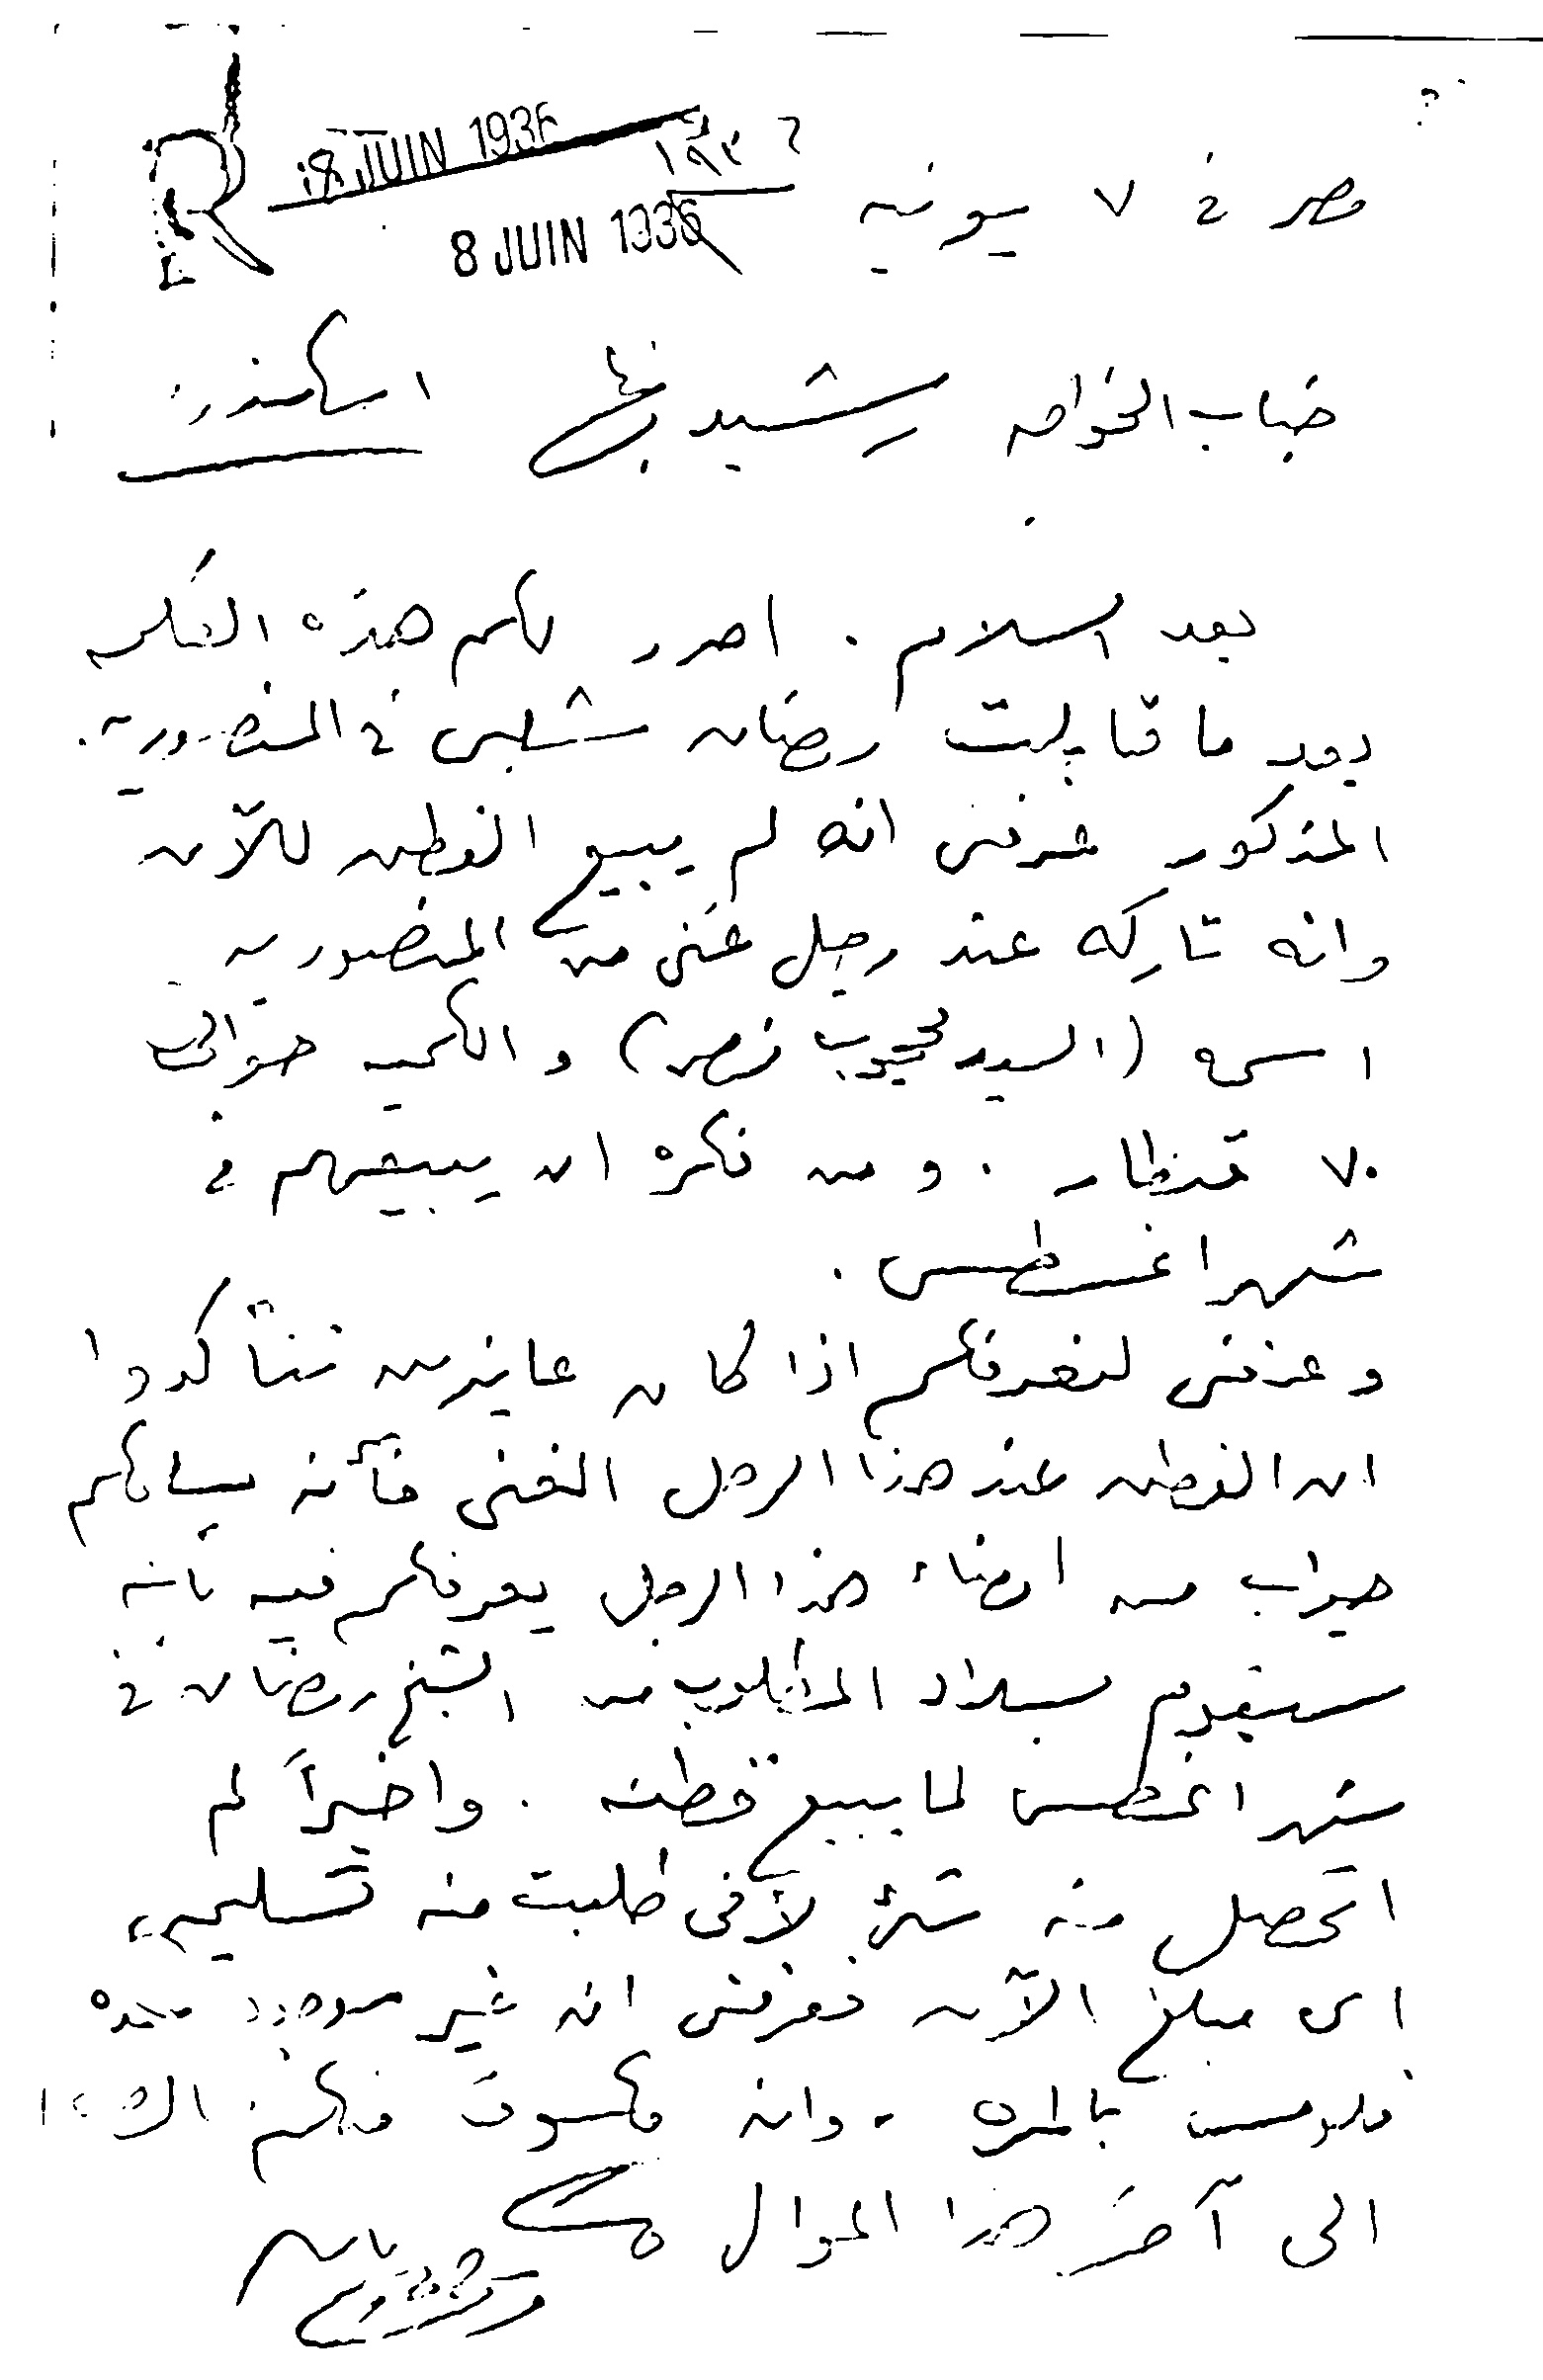 8 JUIN 1936
مصر فى ٧ يونيه ١٩٣٦
8 JUIN 1936
جناب الخواجه رشيد اسكندريه
بعد السلام . احرر لكم هذه
بعد ما قابلت رمضان شلبى فى المنصوريه .
المذكور عرفنى انه لم يبيع القطن للآن
وانه تاركه عند رجل غنى من المنصوريه
اسمه (السيد محجوب نصر) والكميه حوالى
٧٠ قنطار . ومن فكره ان يبيعهم فى
شهر اغسطس .
وعرفنى لنعرفكم اذا كان عايزين تتأكدوا
ان القطن عند هذا الرجل الغنى فأنه
جواب من امضاء هذا الرجل يعرفكم فيه بانه
سيقوم بسداد المطلوب من الشيخ رمضان فى
شهر اغسطس لما يبيع قطنه . واخيراً لم
اتحصل منه شئ لأنى طلبت منه تسليم
اى مبلغ الآن فعرفنى انه غير موجود عنده
فلوس بالمره . وانه مكسوف منكم
الى آخر هذا الموال